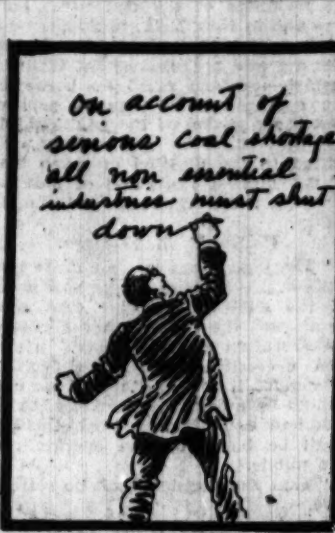 on account of
serious coal shortage
all non essential
industries must shut
down